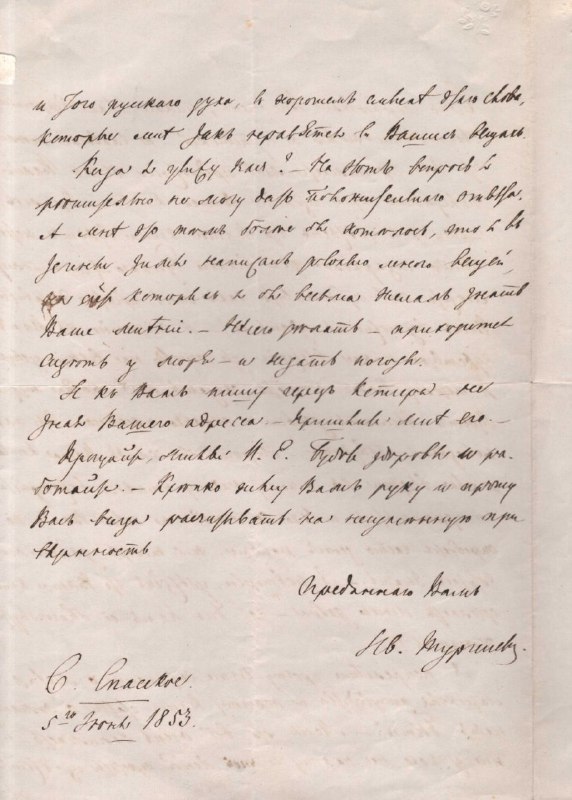 и того русскаго духа, въ хорошемъ смыслѣ этаго слова,
которые мнѣ такъ нравятся въ Вашихъ вещахъ.
Когда я увижу васъ? — На этотъ вопросъ я
рѣшительно не могу дать положительнаго отвѣта.
А мнѣ бы тѣмъ болѣе хотѣлось, что я въ
теченьи зимы написалъ довольно много вещей,
о которыхъ я бы весьма желалъ знать
Ваше мнѣнiе. — Нѣчего дѣлать — приходится
сидѣть у моря — и ждать погоды.
Я къ Вамъ пишу черезъ Кетчера — не
зная Вашего адресса — пришлите мнѣ его. —
Прощайте, милый И. Е. Будьте здоровы и ра-
ботайте. — Крѣпко жму Вамъ руку и прошу
Васъ всегда расчитывать на неизмѣнную при-
вязанность
Преданнаго Вамъ
Ив. Тургеневъ.
С. Спасское.
5го Iюня 1853.